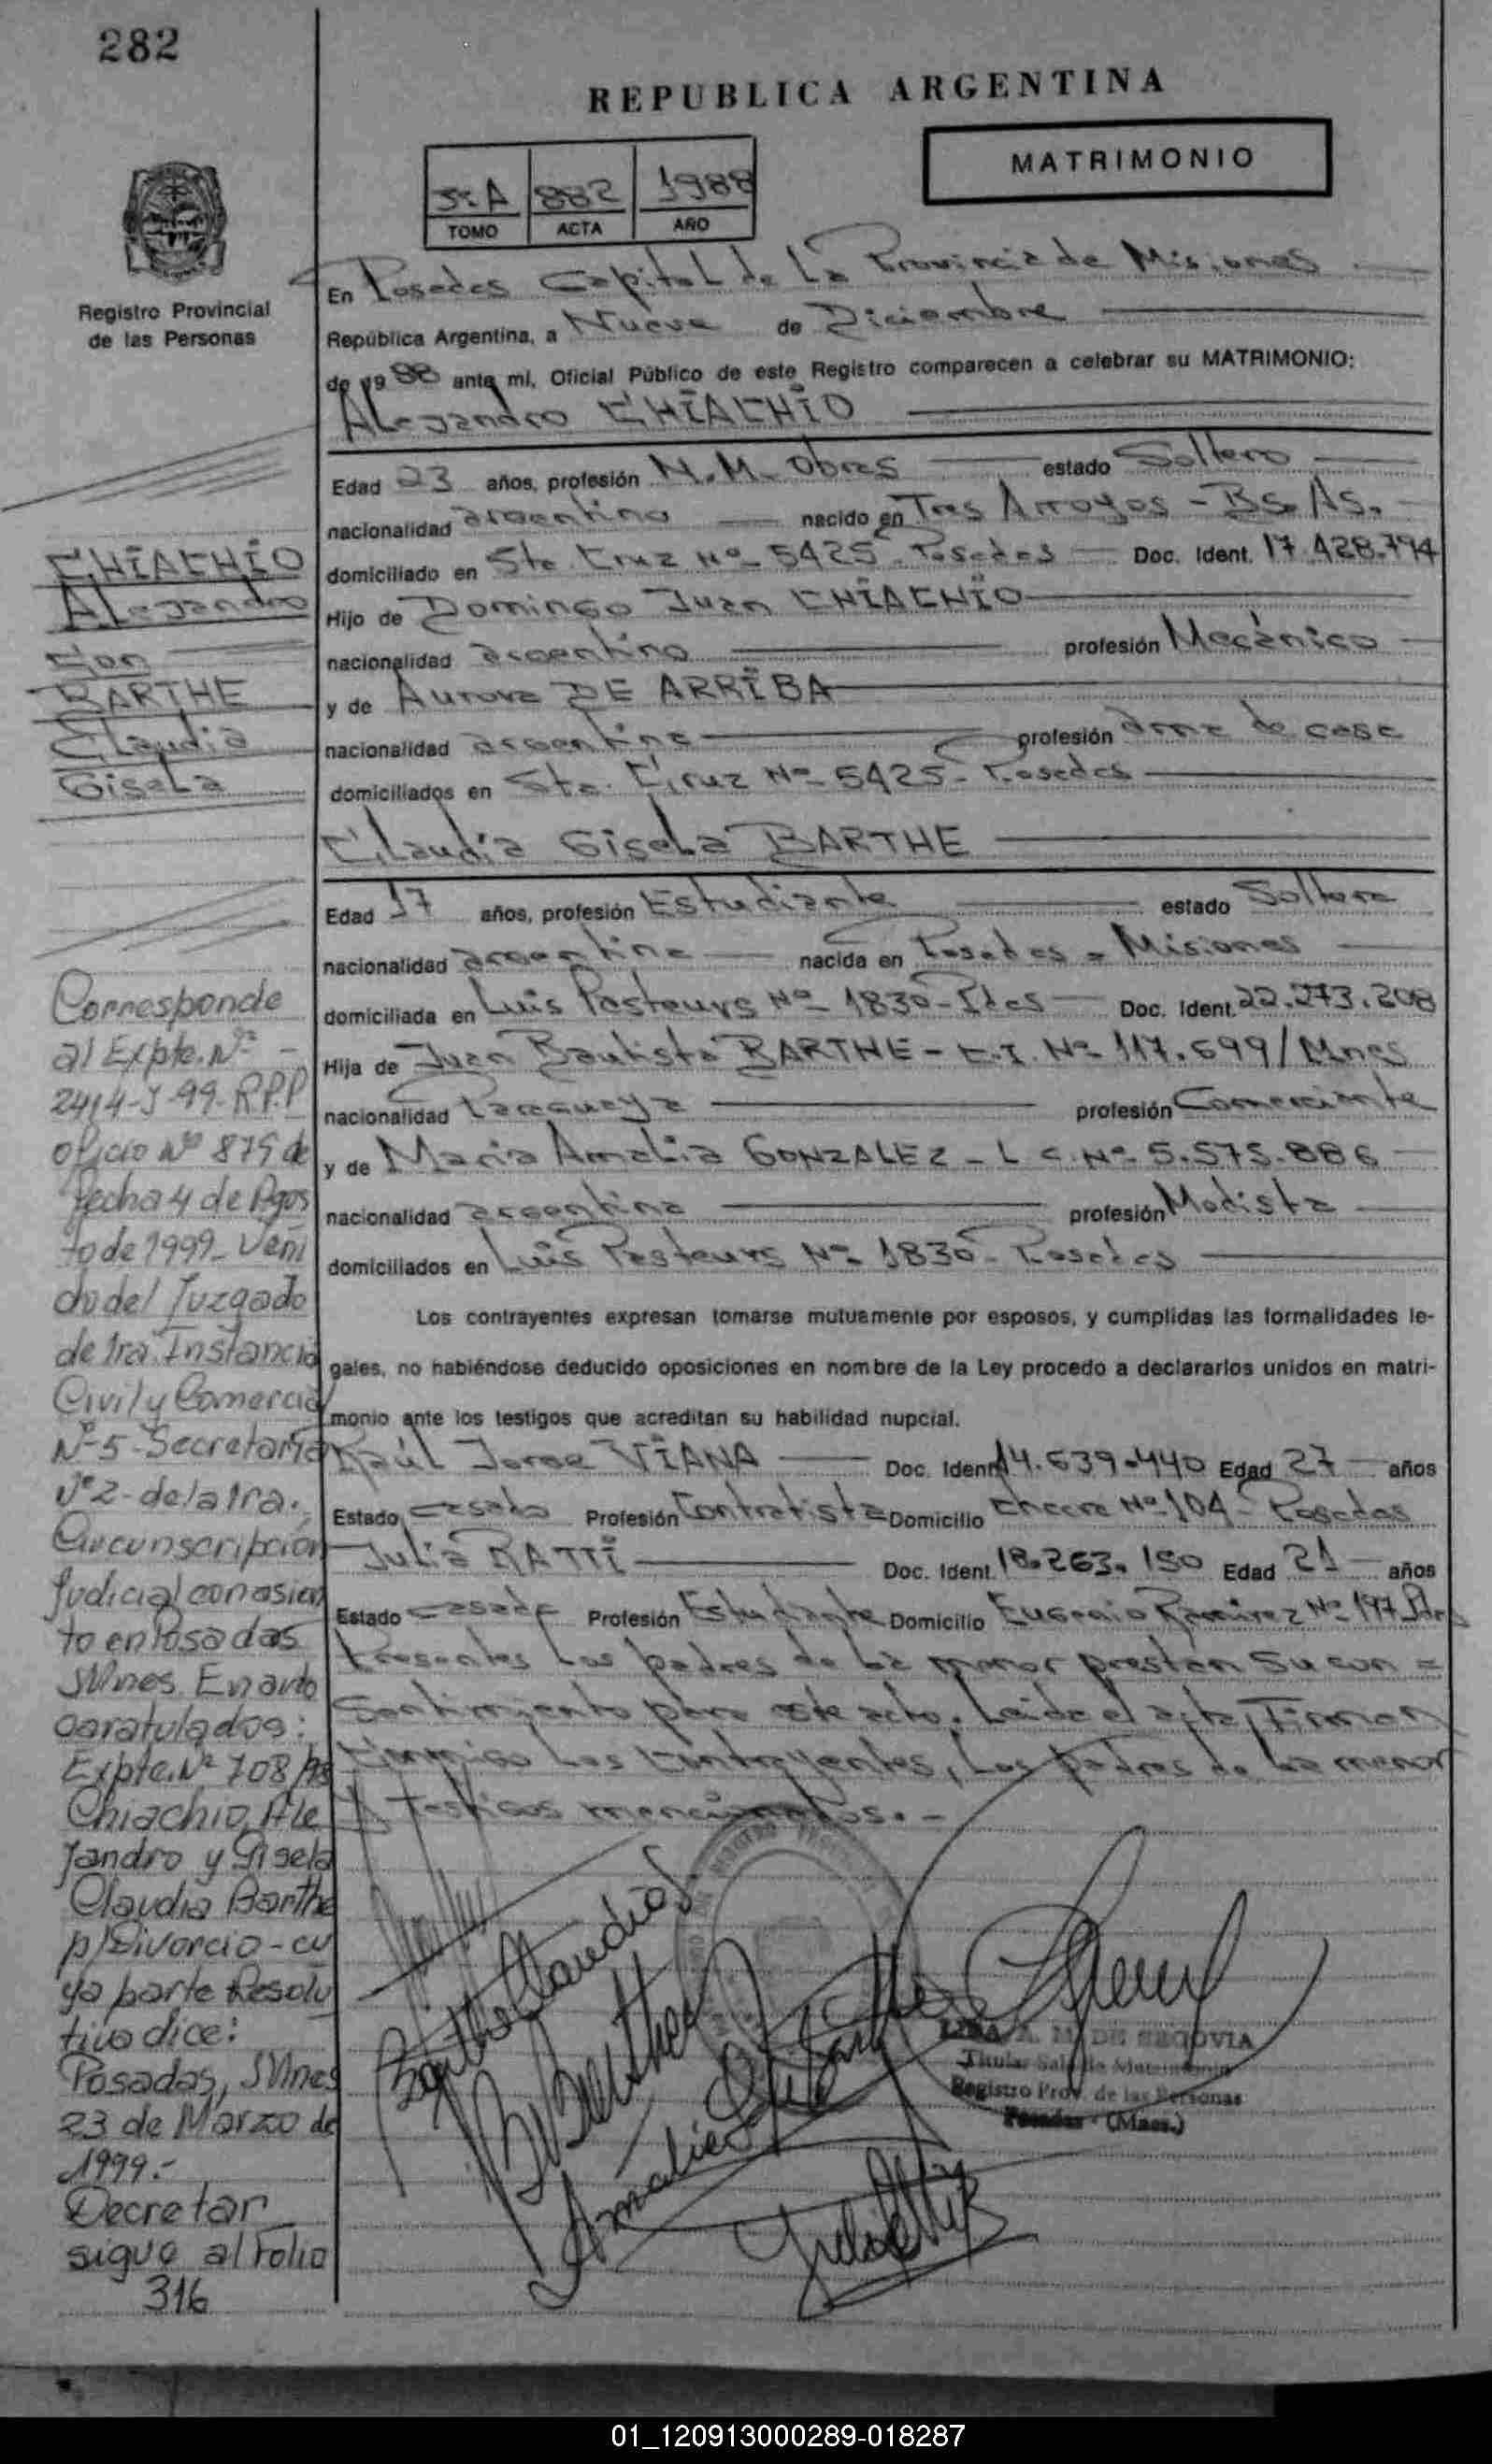 282
REPUBLICA ARGENTINA
MATRIMONIO
5: A 882 1988
TOMO ACTA AÑO
Registro Provincial
de las Personas
En Posadas Capital de La Provincia de Misiones
República Argentina, a Nueve de Diciembre
de 19 88 ante mi, Oficial Público de este Registro comparecen a celebrar su MATRIMONIO:
Alejandro CHIACHIO
Edad 23 años, profesión M.M. Obras estado Soltero
nacionalidad argentino nacido en Tres Arroyos - Bs. As.
domiciliado en Sta. Cruz Nº 5425 - Posadas Doc. Ident. 17.428.794
Hijo de Domingo Juan CHIACHIO
nacionalidad argentino profesión Mecánico
y de Aurora DE ARRIBA
nacionalidad argentina profesión ama de casa
domiciliados en Sta. Cruz Nº 5425 - Posadas
Claudia Gisela BARTHE
Edad 17 años, profesión Estudiante estado Soltera
nacionalidad argentina nacida en Posadas = Misiones
domiciliada en Luis Pasteurs Nº 1830 - Pdas Doc. Ident. 22.273.208
Hija de Juan Bautista BARTHE - C.I. Nº 117.699/Mnes
nacionalidad Paraguaya profesión Comerciante
y de Maria Amalia GONZALEZ - L.C. Nº 5.575.886
nacionalidad argentina profesión Modista
domiciliados en Luis Pasteurs Nº 1830 - Posadas
Los contrayentes expresan tomarse mutuamente por esposos, y cumplidas las formalidades le-
gales, no habiéndose deducido oposiciones en nombre de la Ley procedo a declararlos unidos en matri-
monio ante los testigos que acreditan su habilidad nupcial.
Raúl Jorge VIANA Doc. Ident. 14.639.440 Edad 27 años
Estado casado Profesión Contratista Domicilio Nº 104 - Posadas
Julia RATTI Doc. Ident. 18.263.150 Edad 21 años
Estado casada Profesión Estudiante Domicilio Eugenio Ramirez Nº 197 Pdas
Presentes Los padres de La menor prestan su con =
sentimiento para este acto. Leida el acta, Firman
Conmigo Los Contrayentes, Los padres de La menor
y Testigos mencionados. -
CHIACHIO
Alejandro
Con
BARTHE
Claudia
Gisela
Corresponde
al Expte. Nº -
2414-J-99-R.P.P
Oficio Nº 875 de
fecha 4 de Agos
to de 1999 - Veni
do del Juzgado
de 1ra. Instancia
Civil y Comercial
Nº 5 - Secretaría
Nº 2 - de la 1ra.
Circunscripción
Judicial con asien
to en Posadas
Mnes. En auto
caratulados:
Expte. Nº 708/98
Chiachio, Ale
jandro y Gisela
Claudia Barthe
p/Divorcio - cu
ya parte Resolu
tiva dice:
Posadas, Mnes
23 de Marzo de
1999.-
Decretar
sigue al Folio
316
Barthe Claudia
LIDA A. M. DE SEGOVIA
Titular Sala de Matrimonio
Registro Prov. de las Personas
Posadas - (Mnes.)
01_120913000289-018287